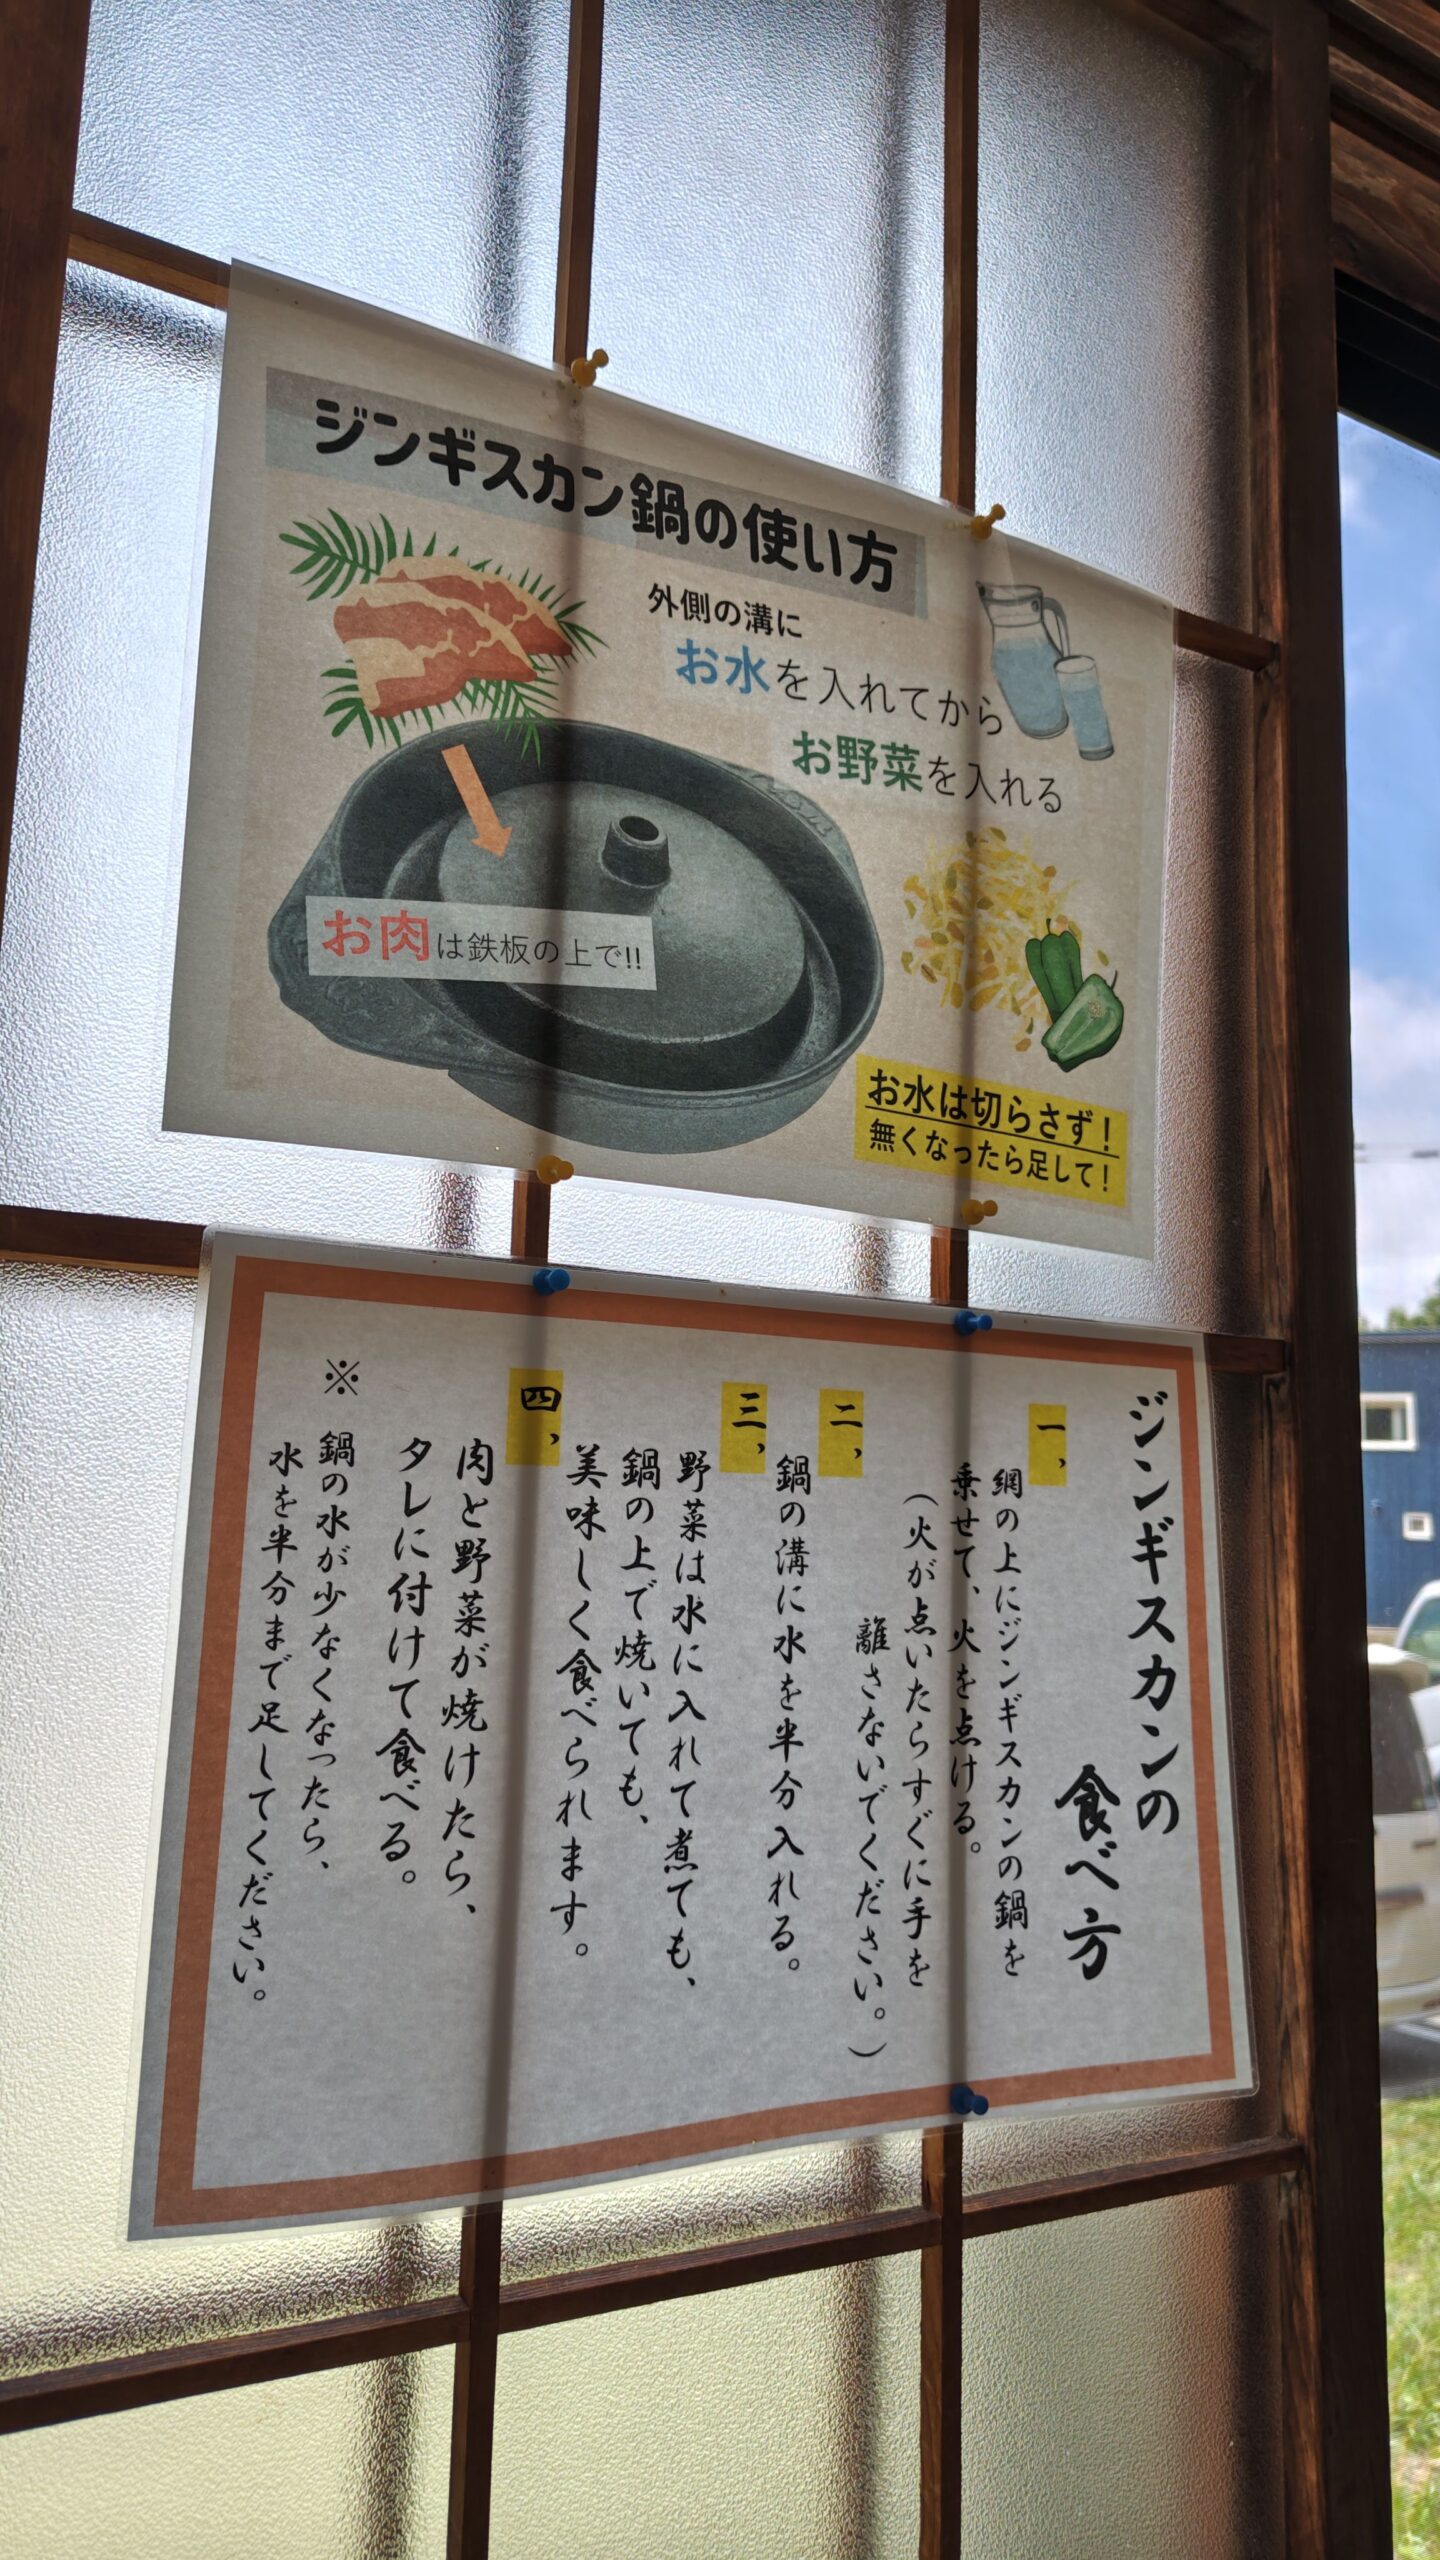 ジンギスカン鍋の使い方
外側の溝に
お水を入れてから
お野菜を入れる
お肉は鉄板の上で!!
お水は切らさず！
無くなったら足して！
ジンギスカンの
食べ方
一、
網の上にジンギスカンの鍋を
乗せて、火を点ける。
（火が点いたらすぐに手を
離さないでください。）
二、
鍋の溝に水を半分入れる。
三、
野菜は水に入れて煮ても、
鍋の上で焼いても、
美味しく食べられます。
四、
肉と野菜が焼けたら、
タレに付けて食べる。
※
鍋の水が少なくなったら、
水を半分まで足してください。